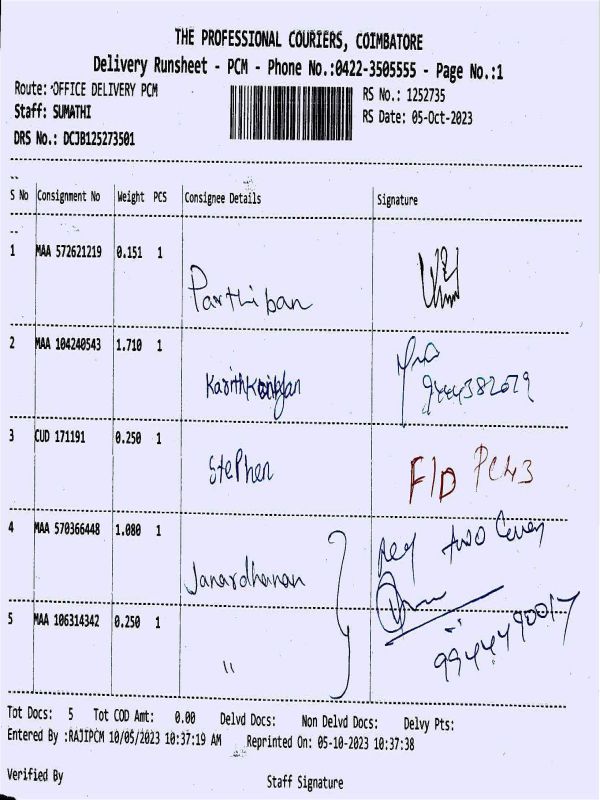 THE PROFESSIONAL COURIERS, COIMBATORE
Delivery Runsheet - PCM - Phone No.:0422-3505555 - Page No.:1
Route: OFFICE DELIVERY PCM
RS No.: 1252735
Staff: SUMATHI
RS Date: 05-Oct-2023
DRS No.: DCJB125273501
S No Consignment No Weight PCS Consignee Details Signature
1 MAA 572621219 0.151 1
Parthiban
2 MAA 104240543 1.710 1
9444382679
3 CUD 171191 0.250 1
Stephen F/D PC43
4 MAA 570366448 1.080 1
two
Janardhanan
5 MAA 106314342 0.250 1
"
9944490017
Tot Docs: 5 Tot COD Amt: 0.00 Delvd Docs: Non Delvd Docs: Delvy Pts:
Entered By :RAJIPCM 10/05/2023 10:37:19 AM Reprinted On: 05-10-2023 10:37:38
Verified By Staff Signature